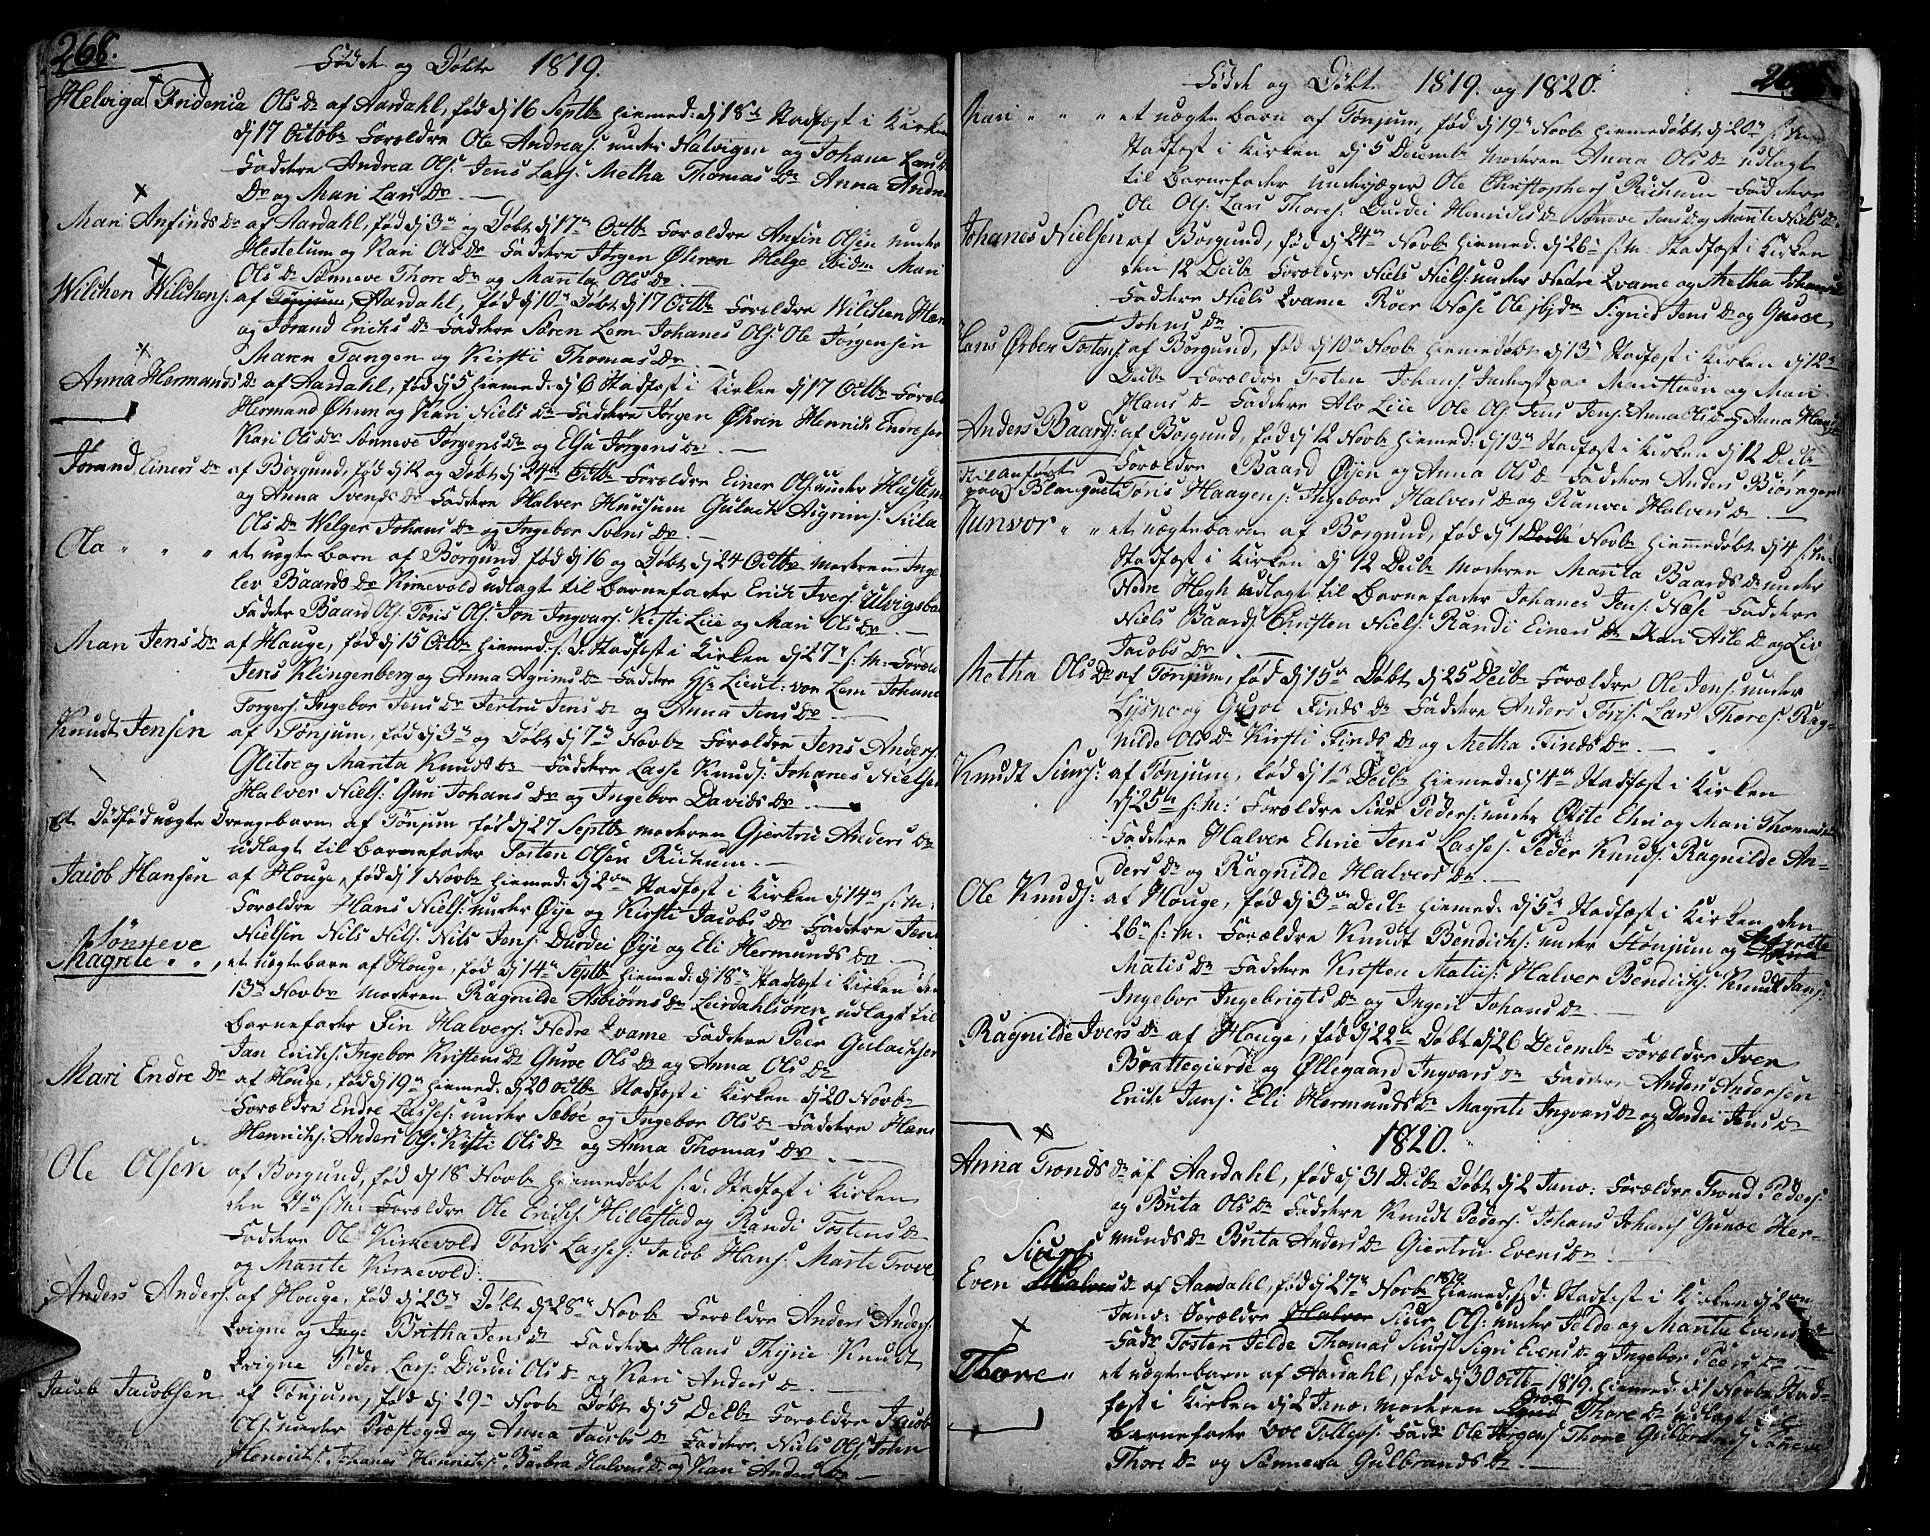 268.
Fødde og Døbte 1819.
Helviga Fridenia Ols Dr af Aardahl, fød dj 16 Septb hiemed: dj 18de Stadfæst i Kirken
dj 17 Octobr Forældre Ole Andreas: under Halvigen og Johane Lars
Faddere Andrea Ols: Jens Lars: Metha Thomas Dr Anna Andre
Dr og Mari Lars Dr
Mari Anfinds Dr af Aardahl, fød dj 3de og Døbt dj 17de Octbr Forældre Anfin Olsen under
Hestetun og Kari Ols Dr Faddere Jørgen Øhren Helge ibidm Mari
Ols Dr Sønneve Thore Dr og Marita Ols Dr
Wilchen Wilchens: af Tønjum, Aardahl, fød dj 10de Døbt dj 17 Octbr Forældre Wilchen Han
og Jørand Erichs Dr Faddere Søren Lem Johanes Ols: Ole Jørgensen
Maren Tangen og Kirsti Thomas Dr
Anna Hermands Dr af Aardahl, fød dj 5 hiemed: dj 6 Stadfæst i Kirken dj 17 Octbr Foræld
Hermand Øhren og Kari Niels Dr Faddere Jørgen Øhren Henrik Endresen
Kari Ols Dr Sønneve Jørgens Dr og Elsa Jørgens Dr
Jorand Einers Dr af Borgund, fød dj 12 og Døbt dj 24de Octbr Forældre Einer Ols: under Husum
og Anna Svends Dr Faddere Halver Huusum Gulach Aigrems: Siila
Ols Dr Welger Johans Dr og Ingebor Svens Dr
Ola " " " et uægte barn af Borgund fød dj 16 og Døbt dj 24 Octbr moderen Inge
lev Baards Dr Kirrevold udlagt til barnefader Erich Ivers: Ulvigsba
Fadder Baard Ols: Tøris Ols: Jon Ingvars: Kisti Lie og Mari Ols Dr
Mari Jens Dr af Houge, fød dj 15 Octbr hiemed: s: D: Stadfæst i Kirken dj 17de s: M: Foræld
Jens Klingenberg og Anna Agrims Dr Faddere Hr Lieut: von Lem Johane
Torgers: Ingebor Jens Dr Jertru Jens Dr og Anna Jens Dr
Knudt Jensen af Tønjum, fød dj 3de og Døbt dj 7de Novbr Forældre Jens Anders:
Glitre og Marita Knuds Dr Faddere Lasse Knuds: Johanes Nielsen
Halver Niels: Gun Johans Dr og Ingebor Davids Dr
Et Dødfød uægte Drengebarn af Tønjum fød dj 27 Septbr moderen Giertru Anders Dr
udlagt til barnefader Tosten Olsen Richum
Jacob Hansen af Houge, fød dj 1 Novbr hiemed: dj 2den Stadfæst i Kirken dj 14de s: M:
Forældre Hans Niels: under Øye og Kirsti Jacobs Dr Faddere Jens
Nielsen Nils Nils: Nils Jens: Durdei Øye og Eli Hermunds Dr
Sønneve
Magrete " " , et uægte barn af Houge, fød dj 14de Septbr hiemed: dj 18de Stadfæst i Kirken den
13de Novbr moderen Ragnilde Asbiørns Dr Leirdahlsøren, udlagt til
Barnefader Fin Halvers: Nedre Qvame Faddere Peer Gulachsen
Jan Erichs: Ingebor Kristens Dr Guroe Ols Dr og Anna Ols Dr
Mari Endre Dr af Houge, fød dj 19de hiemed: dj 20 Octbr Stadfæst i Kirken dj 20 Novbr
Forældre Endre Lasses: under Sæbøe og Ingebor Ols Dr Faddere Hans
Henrichs: Anders Ols: Kisti Ols Dr og Anna Thomas Dr
Ole Olsen af Borgund, fød dj 18 Novbr hiemedøbt s: D: Stadfæst i Kirken
den 21de s: M: Forældre Ole Erichs: Hillestad og Randi Tostens Dr
Faddere Ole Kirrevold Tøris Lasses: Jacob Hans: Marte Trove
og Marite Kirrevold.
Anders Anders: af Houge, fød dj 23de Døbt dj 28de Novbr Forældre Anders Anders:
Qvigne og Inge Britha Jens Dr Faddere Hans Thijne Knudt
Qvigne Peder Lars: Durdei Ols Dr og Kari Anders Dr
Jacob Jacobsen af Tønjum, fød dj 29de Novbr Døbt dj 5 Decbr Forældre Jacob
Ols: under Præstegrd og Anna Jacobs Dr Faddere Niels Ols: John
Henrichs: Johanes Henrichs: Barbra Halvers Dr og Kari Anders Dr
Fødde og Døbt 1819. og 1820.
Kari " " " et uægte barn af Tønjum, fød dj 19de Novbr hiemedøbt dj 20de s: M:
Stadfæst i Kirken dj 5 Decembr Moderen Anna Ols Dr udlagt
til Barnefader Underjæger Ole Christophers: Richum Faddere
Ole Ols: Lars Thores: Durdei Henrichs Dr Sønneve Jens Dr og Marite Niels Dr
Johanes Nielsen af Borgund, fød dj 24de Novbr hiemed: dj 26de s: M: Stadfæst i Kirken
den 12 Decbr Forældre Niels Niels: under Nedre Qvame og Metha Johans Dr
Faddere Niels Qvame Roer Næse Ole ibidm Signed Jens Dr og Guroe
Johns Dr
Hans Ørben Tostens: af Borgund, fød dj 10de Novbr hiemedøbt dj 13de Stadfæst i Kirken dj 12te
Decbr Forældre Tosten Johans: Inderst paa Maristuen og Mari
Hans Dr Faddere Alv Liie Ole Ols: Jens Jens: Anna Ols Dr og Anna Hans Dr
Anders Baards: af Borgund, fød dj 12 Novbr hiemed: dj 13de Stadfæst i Kirken dj 12 Decbr
Forældre Baard Øijen og Anna Ols Dr Faddere Anders Biøringen
Tøris Haagens: Ingebor Halvers Dr og Ranvei Halvers Dr
Feilanført
paa Blanquet
Gunvor " " et uægte barn af Borgund, fød dj 1 Decbr Novbr hiemmedøbt dj 4 s: M:
Stadfæst i Kirken dj 12 Decbr Moderen Marita Baards Dr under
Nedre Hegh udlagt til Barnefader Johanes Jens: Næse Faddere
Niels Baards: Christen Niels: Randi Einers Dr Kari Asle Dr og Liv
Jacobs Dr
Metha Ols Dr af Tønjum, fød dj 15de Døbt dj 25 Decbr Forældre Ole Jens: under
Lysne og Guroe Finds Dr Faddere Anders Tøris: Lars Thores: Rag-
nilde Ols Dr Kirsti Finds Dr og Metha Finds Dr
Knudt Siurs: af Tønjum, fød dj 1de Decbr hiemed: dj 4de Stadfæst i Kirken
dj 25de s: M: Forældre Siur Peders: under Øfste Ehri og Mari Thomas Dr
Faddere Halver Ehrie Jens Lasses: Peder Knuds: Ragnilde An-
ders Dr og Ragnilde Halvers Dr
Ole Knuds: af Houge, fød dj 3de Decbr hiemed: dj 5de Stadfæst i Kirken den
26de s: M: Forældre Knudt Bendichs: under Stønjum og
Matis Dr Faddere Kristen Matis: Halver Bendichs: Knudt Jans:
Ingebor Ingebrigts Dr og Ingeri Johans Dr
Ragnilde Ivers Dr af Houge, fød dj 22de Døbt dj 26 Decembr Forældre Iver
Brattegierde og Øllegaard Ingvars Dr Faddere Anders Andersen
Erich Jans: Eli Hermunds Dr Magrete Ingvars Dr og Dordei Jens Dr
1820.
Anna Tronds Dr af Aardahl, fød dj 31 Decbr Døbt dj 2 Janv: Forældre Trond Peders:
og Brita Ols Dr Faddere Knudt Peders: Johans Johans: Guroe Her-
munds Dr Brita Anders Dr Giertru Evens Dr
Siurs:
Even Halvers Dr af Aardahl, fød dj 27de Novbr 1819 hiemed: s: D: Stadfæst i Kirken dj 2den
Janv: Forældre Halver Siur Ols: under Jelde og Marite Evens Dr
Fadr Tosten Jelde Thomas Siurs: Sigri Evens Dr og Ingebor Peers Dr
Thore " et uægte barn af Aardahl, fød dj 30 Octbr 1819. hiemed: dj 1 Novbr Stad-
fæst i Kirken dj 2 Janv: moderen Thore Dr udlagt til
barnefader Boe Tollefs: Fadr Ole Jørgens: Thore Gulbrands: Sønneve
Thore Dr og Sønneva Gulbrands Dr